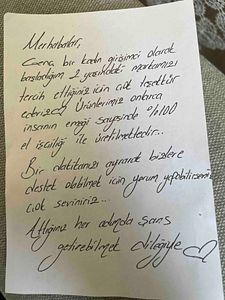 Merhabalar,
Genç bir kadın girişimci olarak
başladığım 2 yaşındaki markamızı
tercih ettiğiniz için çok teşekkür
ederiz Ürünlerimiz onlarca
insanın emeği sayesinde %100
el işçiliği ile üretilmektedir..
Bir dakikanızı ayırarak bizlere
destek olabilmek için yorum yapabilirseniz
çok seviniriz...
Attığınız her adımda şans
getirebilmek dileğiyle